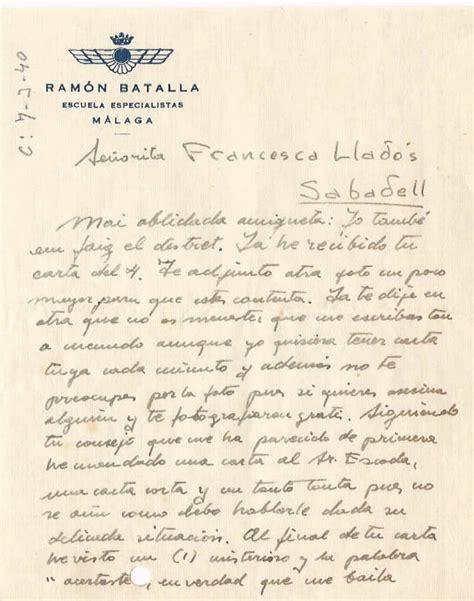 RAMÓN BATALLA
ESCUELA ESPECIALISTAS
MÁLAGA
C: 7-3-40
Señorita Francesca Lladós
Sabadell
Mai oblidada amigueta: Jo també
em faig el distret. Ya he recibido tu
carta del 4. Te adjunto otra foto un poco
mayor para que estes contenta. Ya te dije en
otra que no es menester que me escribas tan
a menudo aunque yo quisiera tener carta
tuya cada minuto y además no te
preocupes por la foto pues si quieres asesina
alguien y te fotografiaran gratis. Siguiendo
tu consejo que me ha parecido de primera
he mandado una carta al Sr. Escoda,
una carta corta y un tanto tonta pues no
se aún como debo hablarle dada su
delicada situación. Al final de tu carta
he visto un (1) misterioso y la palabra
"acertaste", en verdad que me baila